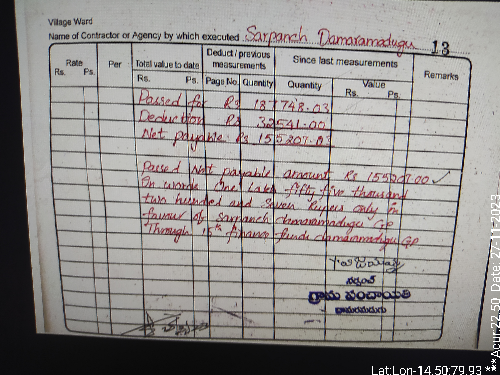 Village Ward
Name of Contractor or Agency by which executed Sarpanch Damaramadugu 13
Rate
Rs. Ps.
Per
Total value to date
Rs. Ps.
Deduct / previous measurements
Page No. Quantity
Since last measurements
Quantity
Value
Rs. Ps.
Remarks
Passed for Rs 187748.03
Deduction Rs 32541.00
Net payable Rs 155207.03
Passed Net payable amount Rs 155207.00
In words One Lakh fifty five thousand
two hundred and seven Rupees only in
favour of Sarpanch damaramadugu GP
Through 15th finance funds damaramadugu GP
సర్పంచ్
గ్రామ పంచాయితి
దామరమడుగు
Lat:Lon-14.50:79.93
**Acur:22.50 Date: 27-11-2023